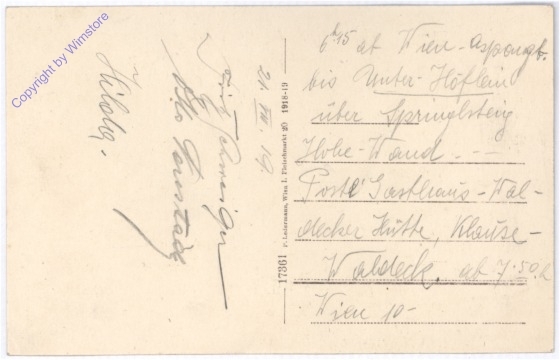 Copyright by Wimstore
6h15 ab Wien-Aspangb.
bis Unter-Höflein
über Springlsteig
Hohe-Wand. --
Poste Gasthaus-Wal-
decker Hütte, Klause-
Waldeck. ab 7.50h
Wien 10-
17361 P. Ledermann, Wien I. Fleischmarkt 20 1918-19
21. VIII. 19.
Hilda.